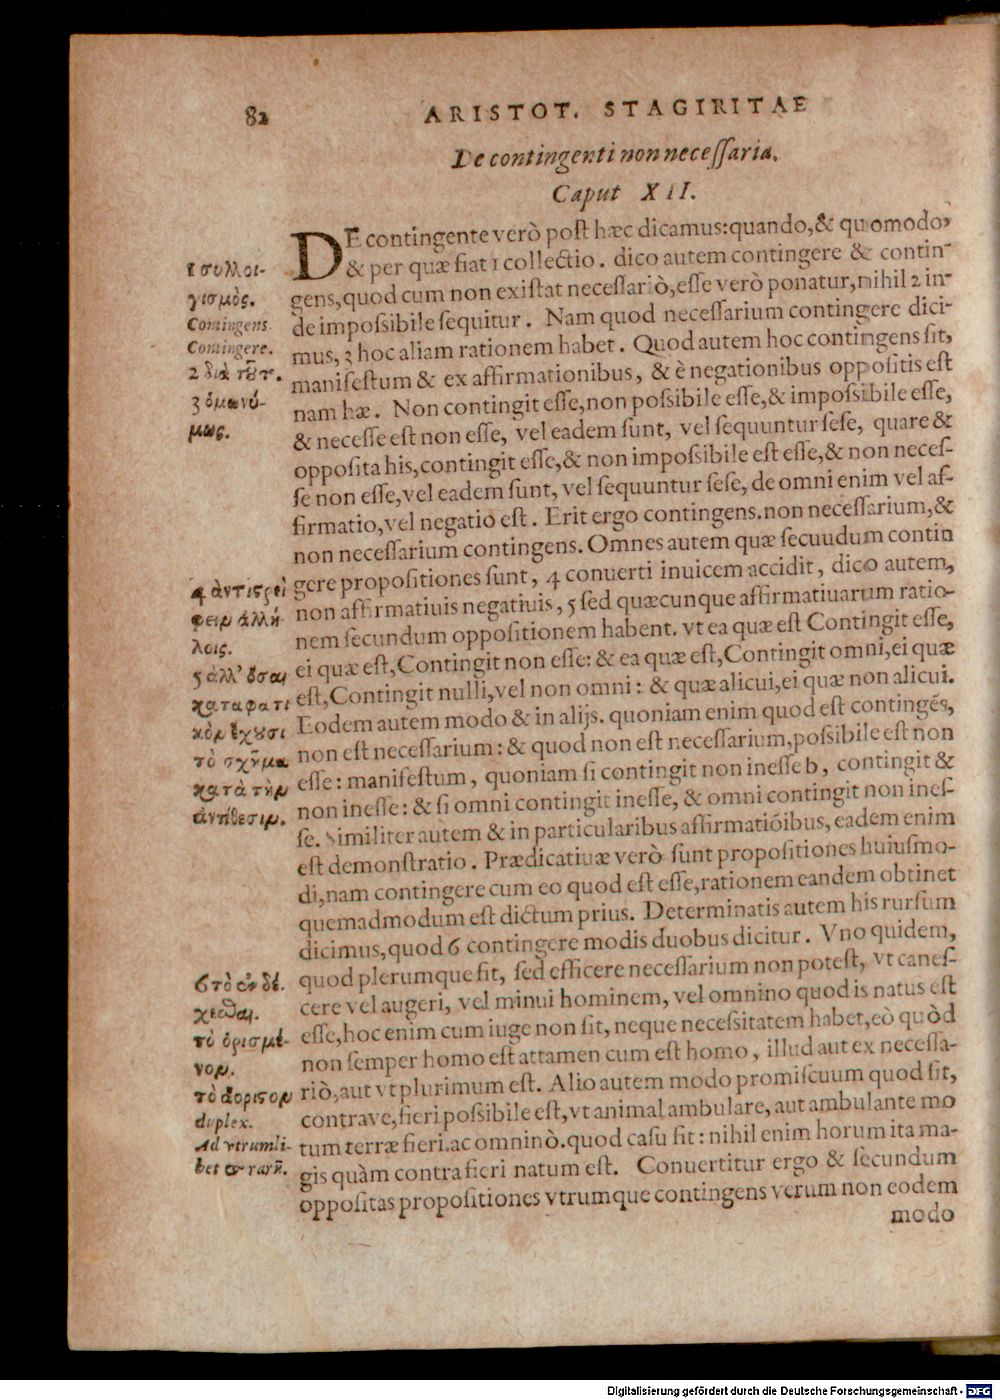 82 ARISTOT. STAGIRITAE
De contingenti non necessaria.
Caput XII.
DE contingente verò post hæc dicamus: quando, & quomodo,
& per quæ fiat 1 collectio. dico autem contingere & contin-
gens, quod cum non existat necessariò, esse verò ponatur, nihil 2 in-
de impossibile sequitur. Nam quod necessarium contingere dici-
mus, 3 hoc aliam rationem habet. Quod autem hoc contingens sit,
manifestum & ex affirmationibus, & è negationibus oppositis est
nam hæ. Non contingit esse, non possibile esse, & impossibile esse,
& necesse est non esse, vel eadem sunt, vel sequuntur sese, quare &
opposita his, contingit esse, & non impossibile est esse, & non neces-
se non esse, vel eadem sunt, vel sequuntur sese, de omni enim vel af-
firmatio, vel negatio est. Erit ergo contingens. non necessarium, &
non necessarium contingens. Omnes autem quæ secuudum contin
gere propositiones sunt, 4 conuerti inuicem accidit, dico autem,
non affirmatiuis negatiuis, 5 sed quæcunque affirmatiuarum ratio-
nem secundum oppositionem habent. vt ea quæ est Contingit esse,
ei quæ est, Contingit non esse: & ea quæ est, Contingit omni, ei quæ
est, Contingit nulli, vel non omni: & quæ alicui, ei quæ non alicui.
Eodem autem modo & in alijs. quoniam enim quod est contingés,
non est necessarium: & quod non est necessarium, possibile est non
esse: manifestum, quoniam si contingit non inesse b, contingit &
non inesse: & si omni contingit inesse, & omni contingit non ines-
se. Similiter autem & in particularibus affirmatiōibus, eadem enim
est demonstratio. Prædicatiuæ verò sunt propositiones huiusmo-
di, nam contingere cum eo quod est esse, rationem eandem obtinet
quemadmodum est dictum prius. Determinatis autem his rursum
dicimus, quod 6 contingere modis duobus dicitur. Vno quidem,
quod plerumque fit, sed efficere necessarium non potest, vt canes-
cere vel augeri, vel minui hominem, vel omnino quod is natus est
esse, hoc enim cum iuge non sit, neque necessitatem habet, eò quòd
non semper homo est attamen cum est homo, illud aut ex necessa-
riò, aut vt plurimum est. Alio autem modo promiscuum quod sit,
contrave, fieri possibile est, vt animal ambulare, aut ambulante mo
tum terræ fieri. ac omninò. quod casu fit: nihil enim horum ita ma-
gis quàm contra fieri natum est. Conuertitur ergo & secundum
oppositas propositiones vtrumque contingens verum non eodem
modo
1 συλλοι-
γισμὸς.
Contingens
Contingere.
2 διὰ τȣ̃τ.
3 ὁμωνύ-
μως.
4 ἀντιςρεί
φειν ἀλλή
λοις.
5 ἀλλ' ὅσαι
καταφατι
κὸν ἔχȣσι
τὸ σχῆμα
κατὰ τὴν
ἀντίθεσιν.
6 τὸ ἐνδέ-
χεσθαι.
τὸ ὁρισμέ-
νον.
τὸ ἀόριςον
duplex.
Ad vtrumli-
bet & rarū.
Digitalisierung gefördert durch die Deutsche Forschungsgemeinschaft - DFG